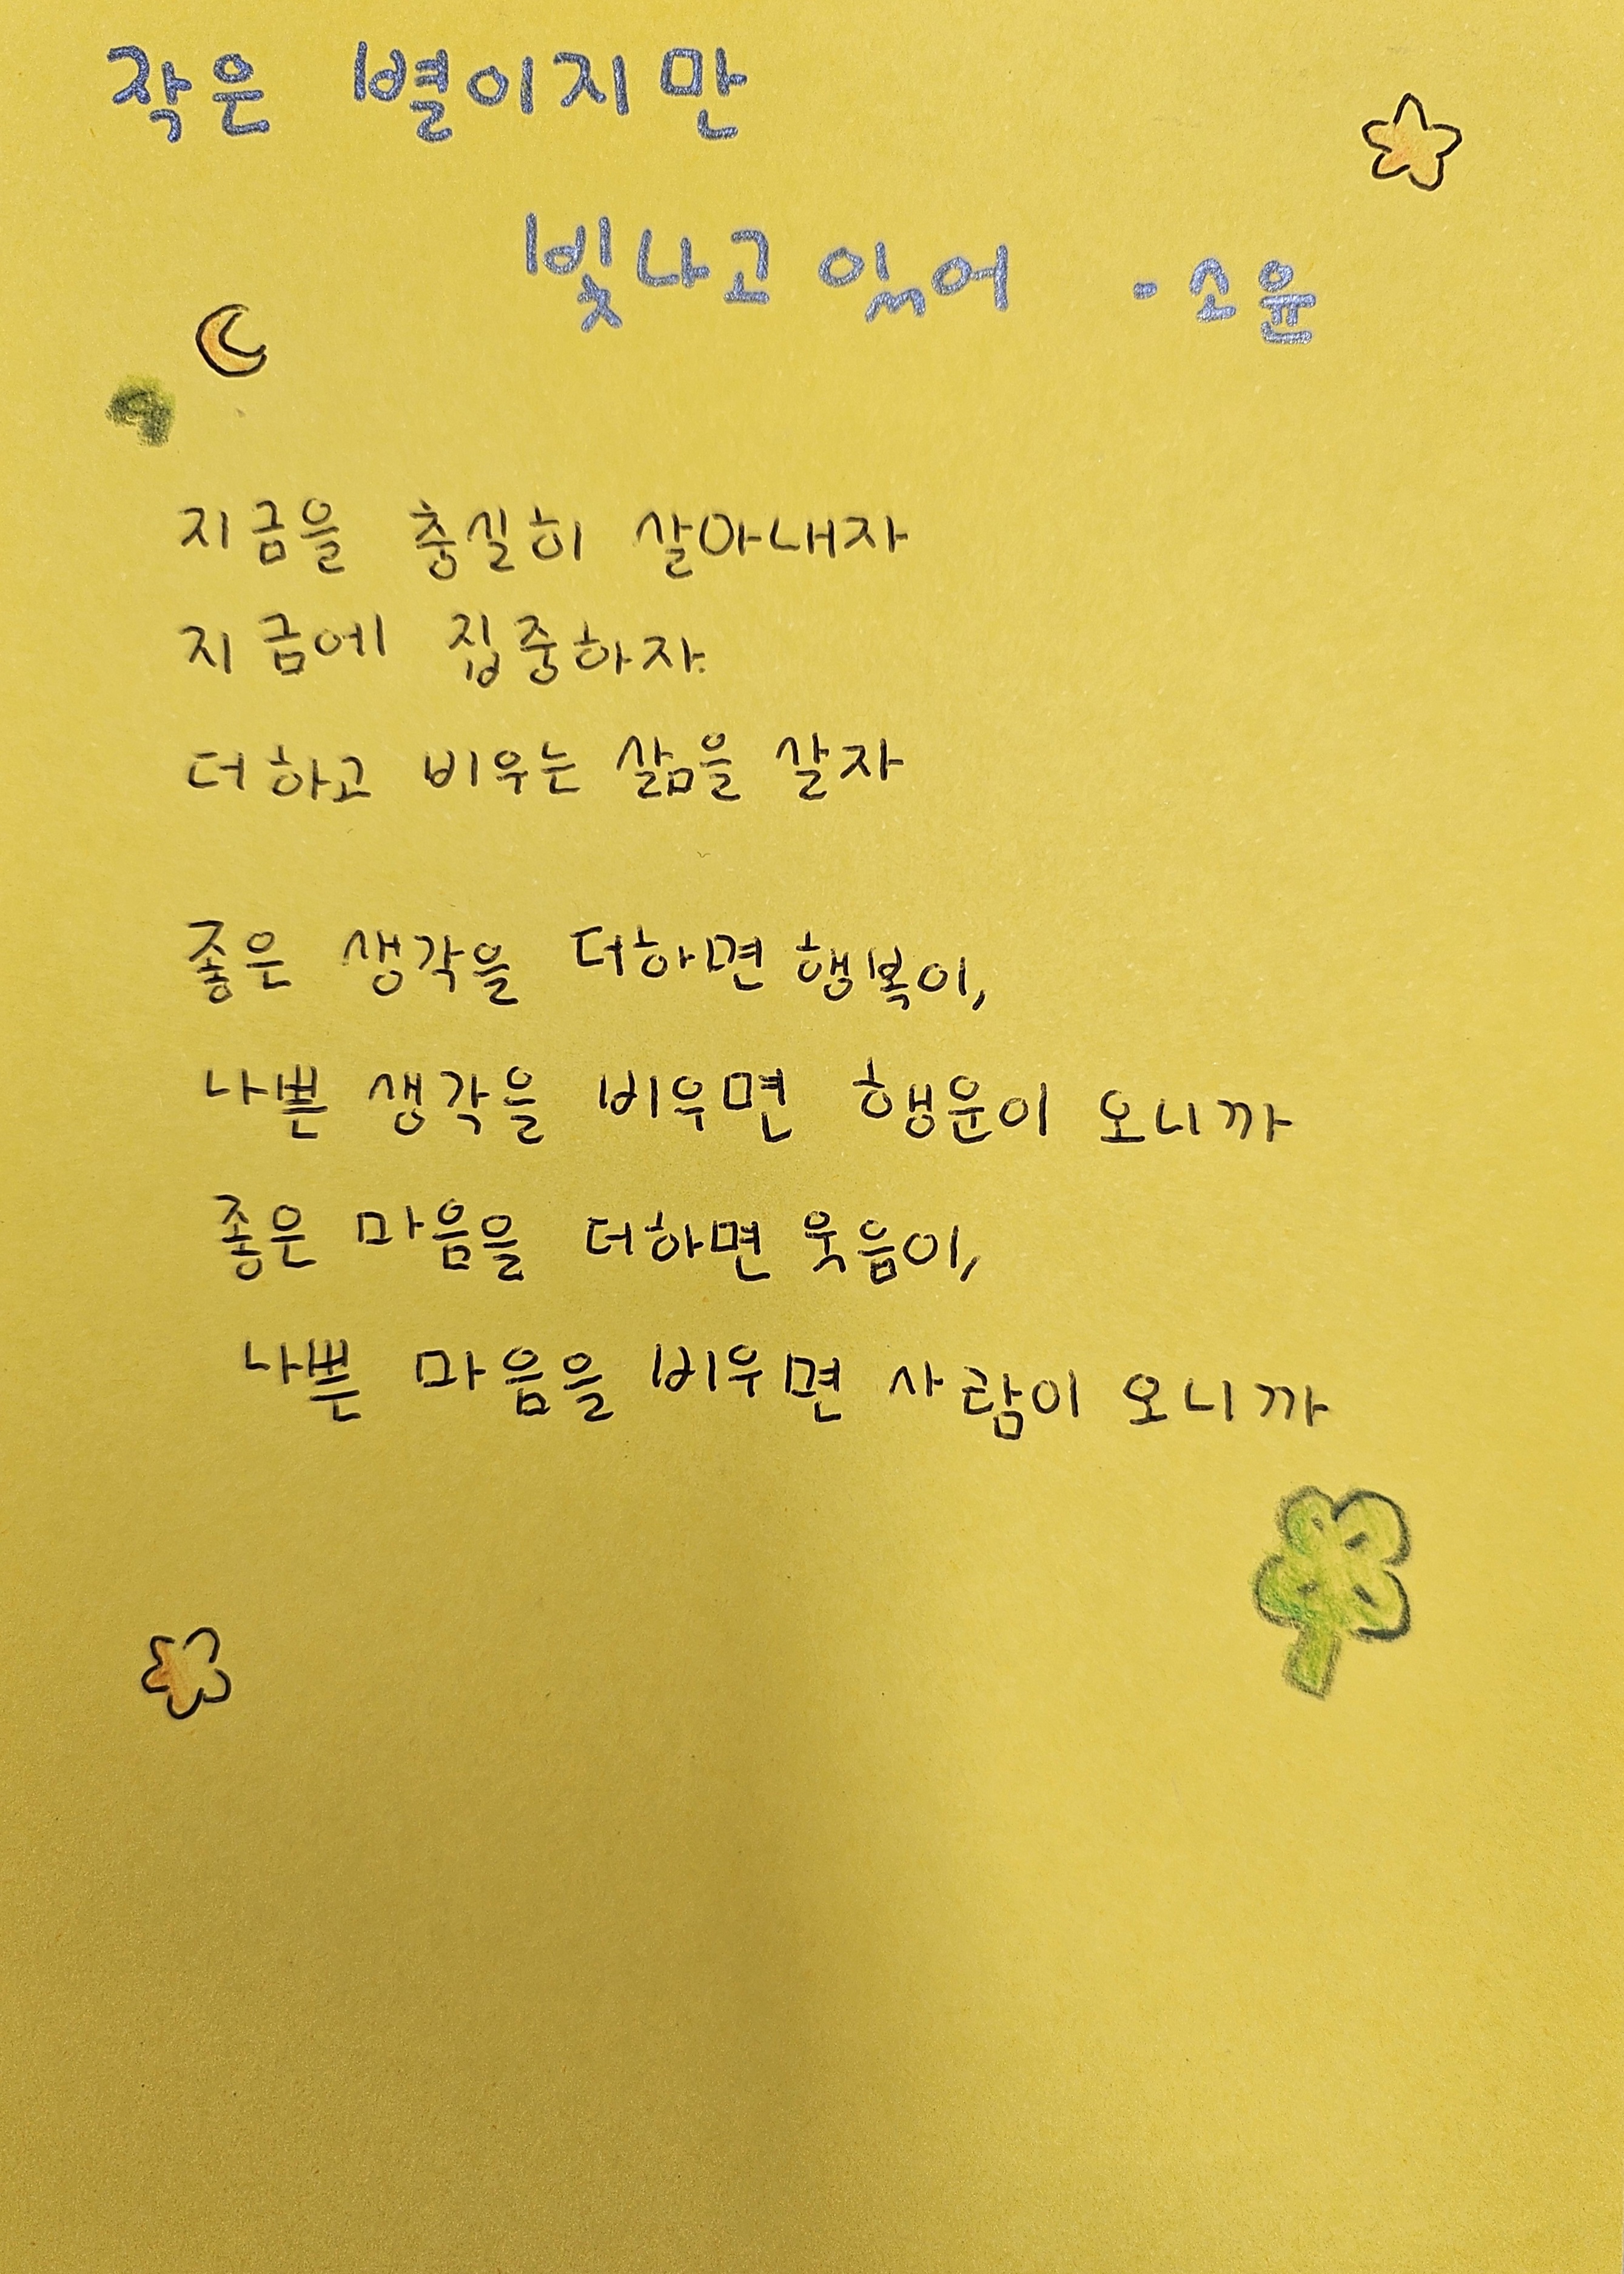 작은 별이지만
빛나고 있어 - 소윤
지금을 충실히 살아내자
지금에 집중하자.
더하고 비우는 삶을 살자
좋은 생각을 더하면 행복이,
나쁜 생각을 비우면 행운이 오니까
좋은 마음을 더하면 웃음이,
나쁜 마음을 비우면 사람이 오니까